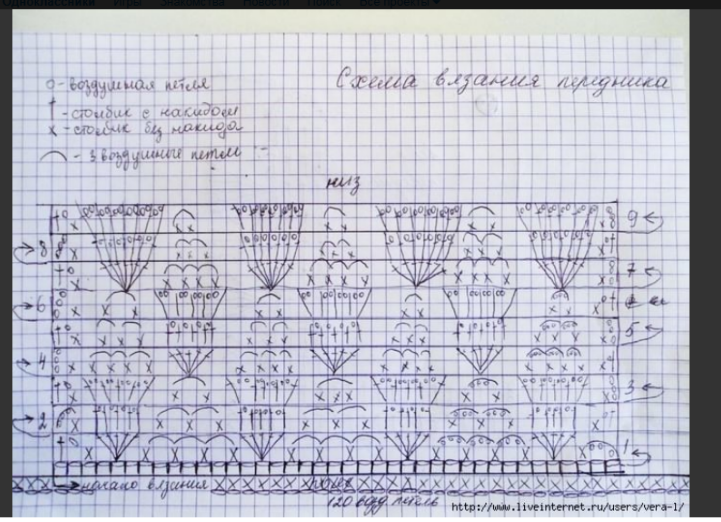 Схема вязания передника
о - воздушная петля
† - столбик с накидом
х - столбик без накида
⌒ - 3 воздушные петли
низ
9
8
7
6
5
4
3
2
1
начало вязания
пояс
120 возд. петель
http://www.liveinternet.ru/users/vera-1/